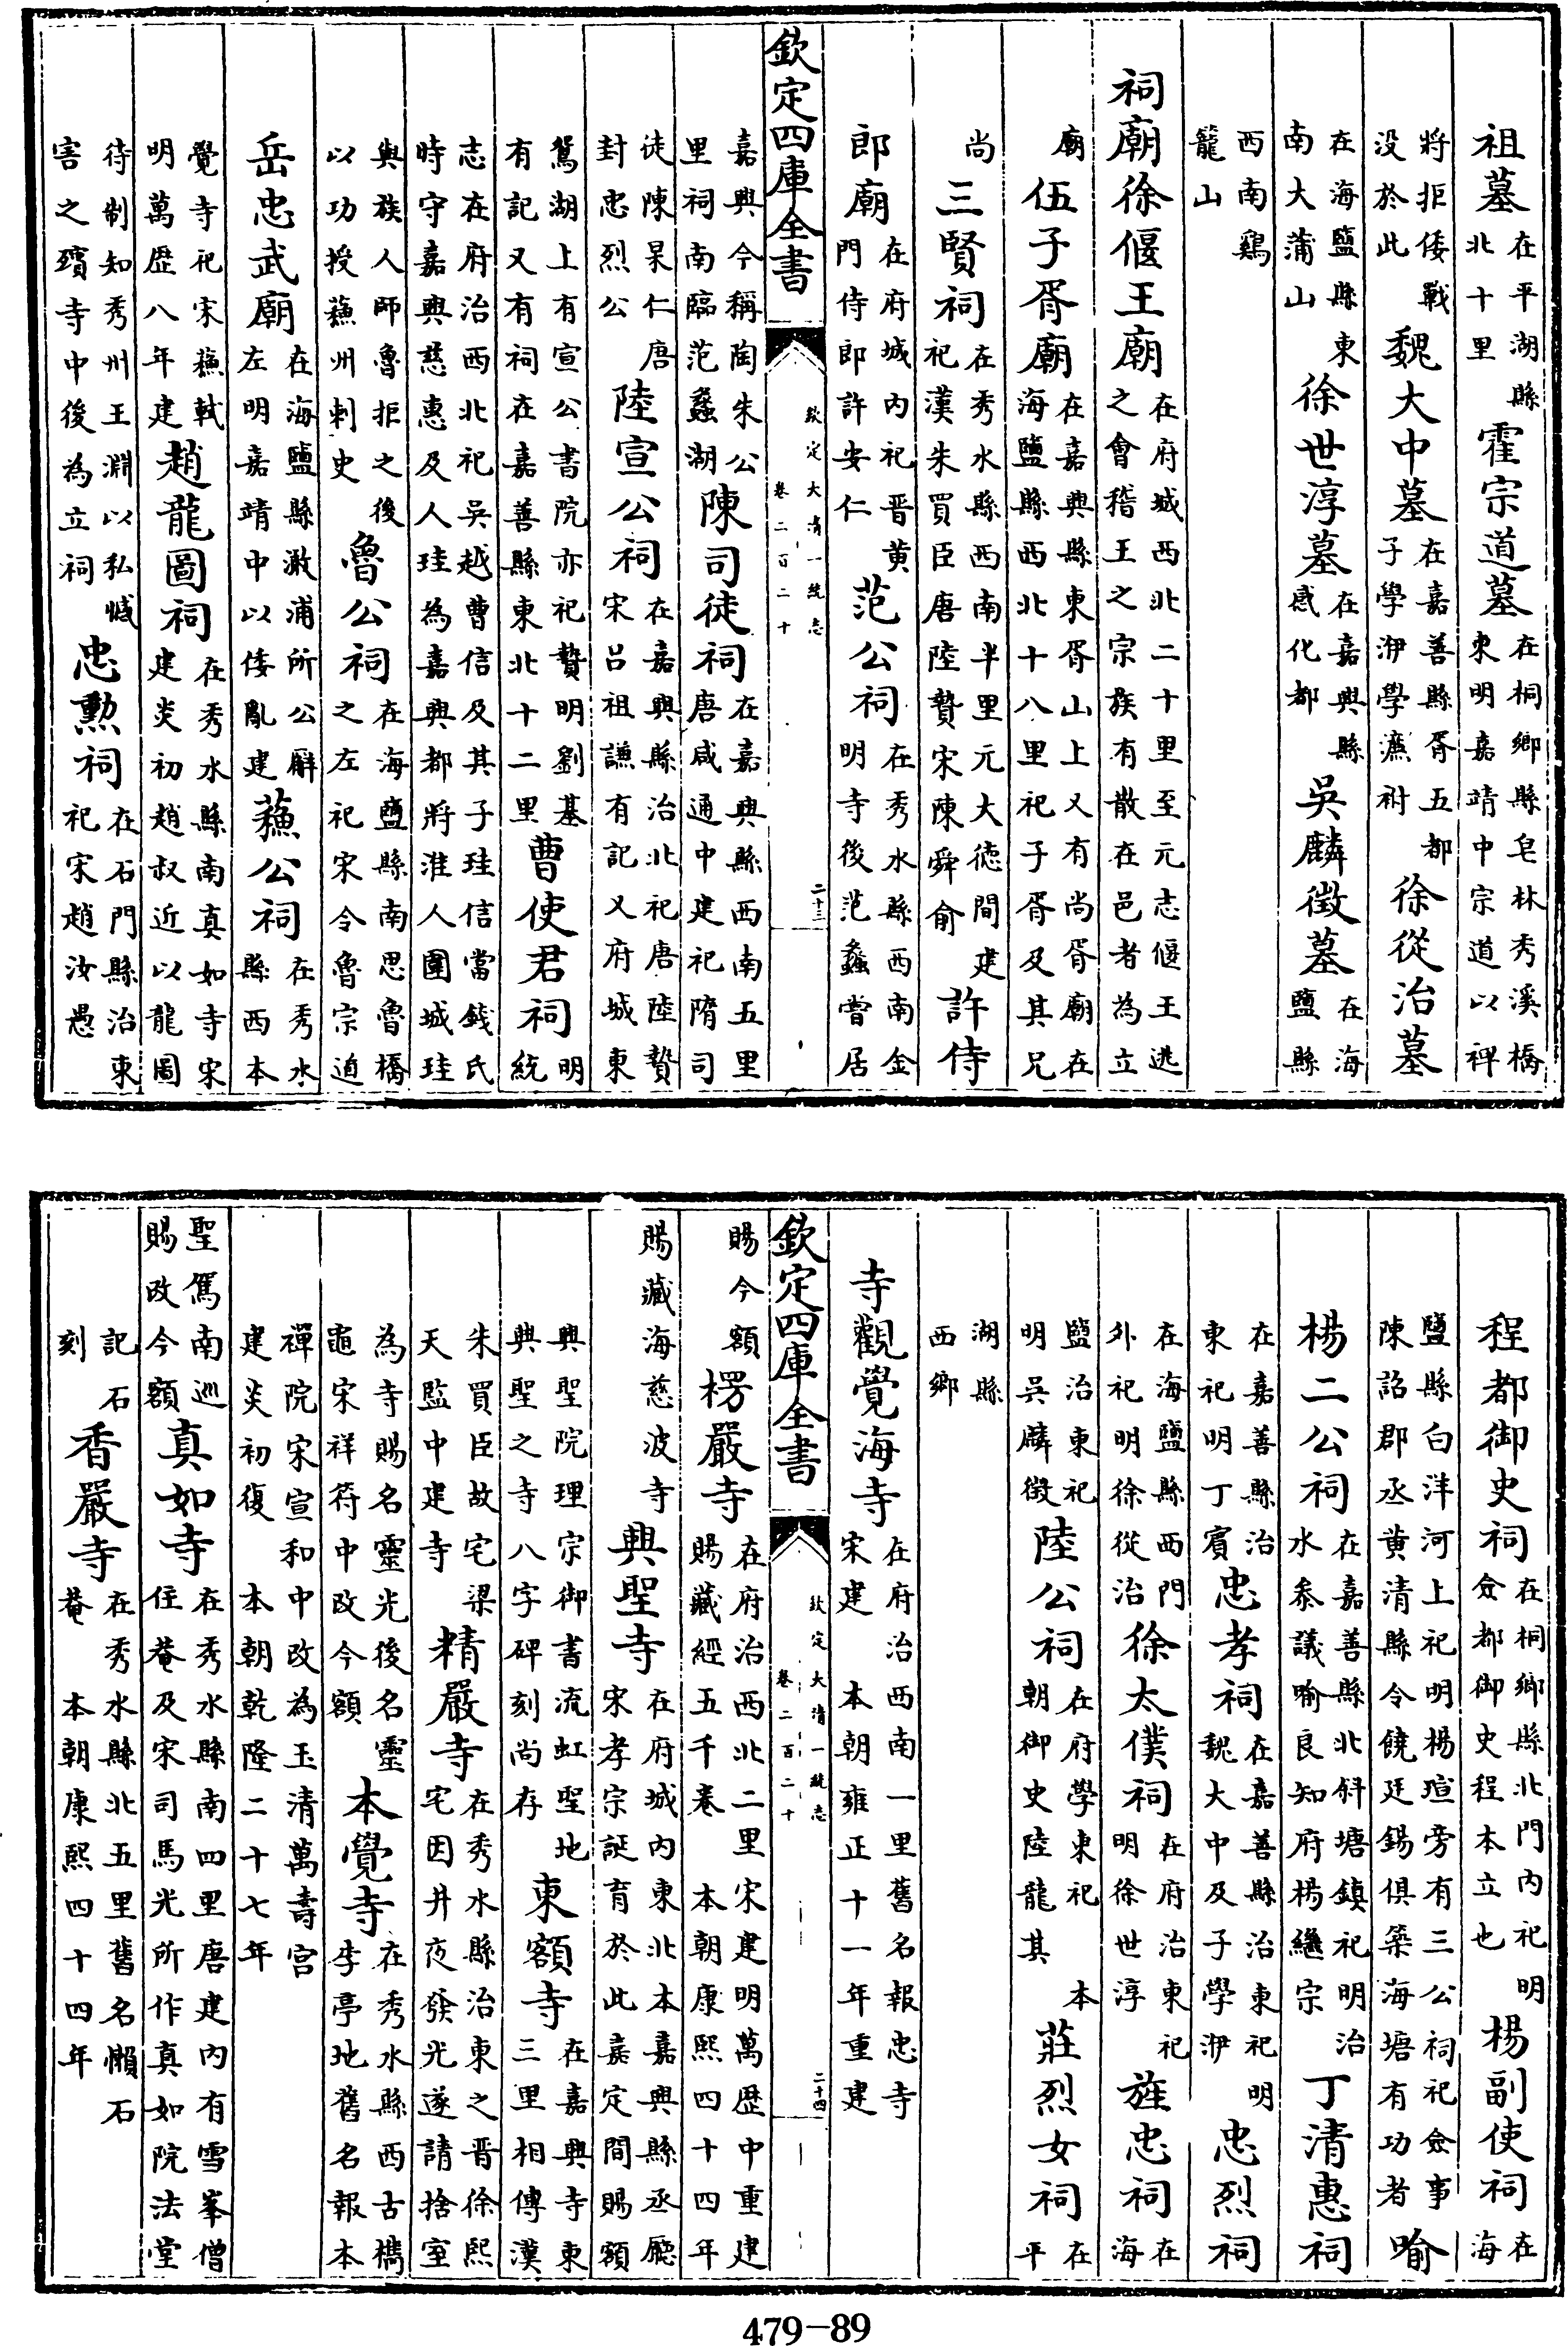 祖墓在平湖縣北十里霍宗道墓在桐鄉縣皂林秀溪橋東明嘉靖中宗道以裨
將拒倭戰没於此魏大中墓在嘉善縣胥五都子學洢學濂祔徐從治墓
在海鹽縣東南大蒲山徐世淳墓在嘉興縣感化都吳麟徵墓在海鹽縣
西南鷄籠山
祠廟徐偃王廟在府城西北二十里至元志偃王逃之會稽王之宗族有散在邑者為立
廟伍子胥廟在嘉興縣東胥山上又有尚胥廟在海鹽縣西北十八里祀子胥及其兄
尚三賢祠在秀水縣西南半里元大德間建祀漢朱買臣唐陸贄宋陳舜俞許侍
郎廟在府城内祀晋黄門侍郎許安仁范公祠在秀水縣西南金明寺後范蠡嘗居
欽定四庫全書 欽定大清一統志 卷二百二十 二十三
嘉興今稱陶朱公里祠南臨范蠡湖陳司徒祠在嘉興縣西南五里唐咸通中建祀隋司
徒陳杲仁唐封忠烈公陸宣公祠在嘉興縣治北祀唐陸贄宋吕祖謙有記又府城東
鴛湖上有宣公書院亦祀贄明劉基有記又有祠在嘉善縣東北十二里曹使君祠明統
志在府治西北祀吳越曹信及其子珪信當錢氏時守嘉興慈惠及人珪為嘉興都將淮人圍城珪
與族人師魯拒之後以功授蘓州刺史魯公祠在海鹽縣南思魯橋之左祀宋令魯宗道
岳忠武廟在海鹽縣澉浦所公廨左明嘉靖中以倭亂建蘓公祠在秀水縣西本
覺寺祀宋蘓軾明萬歴八年建趙龍圖祠在秀水縣南真如寺宋建炎初趙叔近以龍圖
待制知秀州王淵以私憾害之殯寺中後為立祠忠勲祠在石門縣治東祀宋趙汝愚
程都御史祠在桐鄉縣北門内祀明僉都御史程本立也楊副使祠在海
鹽縣白洋河上祀明楊瑄旁有三公祠祀僉事陳詔郡丞黄清縣令饒廷錫俱築海塘有功者喻
楊二公祠在嘉善縣北斜塘鎮祀明治水叅議喻良知府楊繼宗丁清惠祠
在嘉善縣治東祀明丁賓忠孝祠在嘉善縣治東祀明魏大中及子學洢忠烈祠
在海鹽縣西門外祀明徐從治徐太僕祠在府治東祀明徐世淳旌忠祠在海
鹽治東祀明吳麟徵陸公祠在府學東祀本朝御史陸龍其莊烈女祠在平
湖縣西鄉
寺觀覺海寺在府治西南一里舊名報忠寺宋建本朝雍正十一年重建
欽定四庫全書 欽定大清一統志 卷二百二十 二十四
賜今額楞嚴寺在府治西北二里宋建明萬歴中重建賜藏經五千卷本朝康熙四十四年
賜藏海慈波寺興聖寺在府城内東北本嘉興縣丞廳宋孝宗誕育於此嘉定間賜額
興聖院理宗御書流虹聖地興聖之寺八字碑刻尚存東額寺在嘉興寺東三里相傳漢
朱買臣故宅梁天監中建寺精嚴寺在秀水縣治東之晋徐熙宅因井夜發光遂請捨室
為寺賜名靈光後名靈寺宋祥符中改今額本覺寺在秀水縣西古檇李亭地舊名報本
禪院宋宣和中改為玉清萬壽宫建炎初復本朝乾隆二十七年
聖駕南巡賜改今額真如寺在秀水縣南四里唐建内有雪峯僧住菴及宋司馬光所作真如院法堂
記石刻香嚴寺在秀水縣北五里舊名懶石菴本朝康熙四十四年
479-89